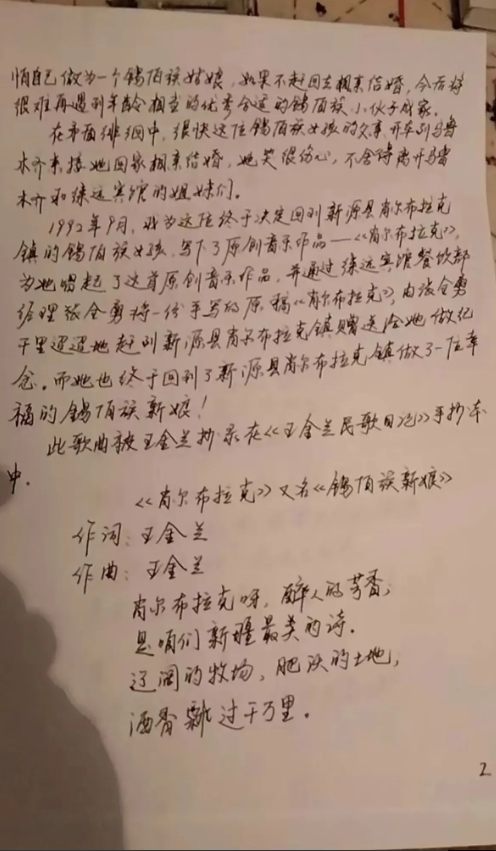 怕自己做为一个锡伯族姑娘,如果不赶回去相亲结婚,今后将
很难再遇到年龄相当的优秀合适的锡伯族小伙子成家。
在矛盾徘徊中,很快这位锡伯族女孩的父亲开车到乌鲁
木齐来接她回家相亲结婚,她哭很伤心,不舍得离开乌鲁
木齐和绿远宾馆的姐妹们。
1992年9月,我为这位终于决定回到新源县肖尔布拉克
镇的锡伯族女孩,写下了原创音乐作品——《肖尔布拉克》,
为她唱起了这首原创音乐作品,并通过绿远宾馆餐饮部
经理张全勇将一份手写的原稿《肖尔布拉克》,由张全勇
千里迢迢地赶到新源县肖尔布拉克镇赠送给她做纪
念。而她也终于回到了新源县肖尔布拉克镇做了一位幸
福的锡伯族新娘!
此歌曲被王金兰抄录在《王金兰民歌日记》手抄本
中。
《肖尔布拉克》又名《锡伯族新娘》
作词:王金兰
作曲:王金兰
肖尔布拉克呀,醉人的芳香,
是咱们新疆最美的诗。
辽阔的牧场,肥沃的土地,
酒香飘过千万里。
2